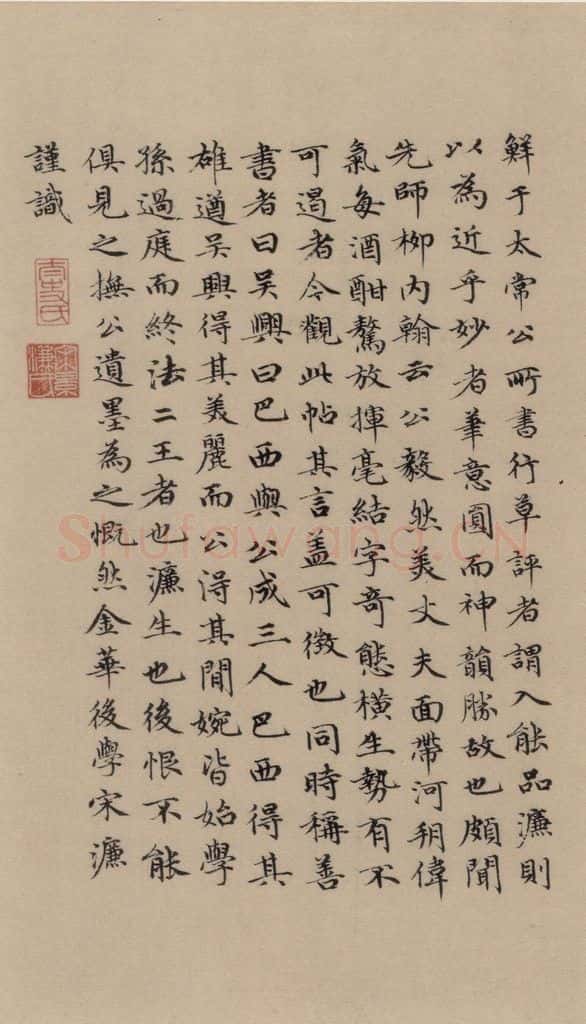 鮮于太常公所書行草評者謂入能品濂則
以為近乎妙者筆意圓而神韻勝故也頗聞
先師柳内翰云公毅然美丈夫面帶河朔偉
氣每酒酣驁放揮毫結字竒態橫生勢有不
可遏者今觀此帖其言盖可徵也同時稱善
書者曰吴興曰巴西與公成三人巴西得其
雄遒吴興得其美麗而公得其閒婉皆始學
孫過庭而終法二王者也濂生也後恨不能
俱見之撫公遺墨為之慨然金華後學宋濂
謹識
Shufawang.CN